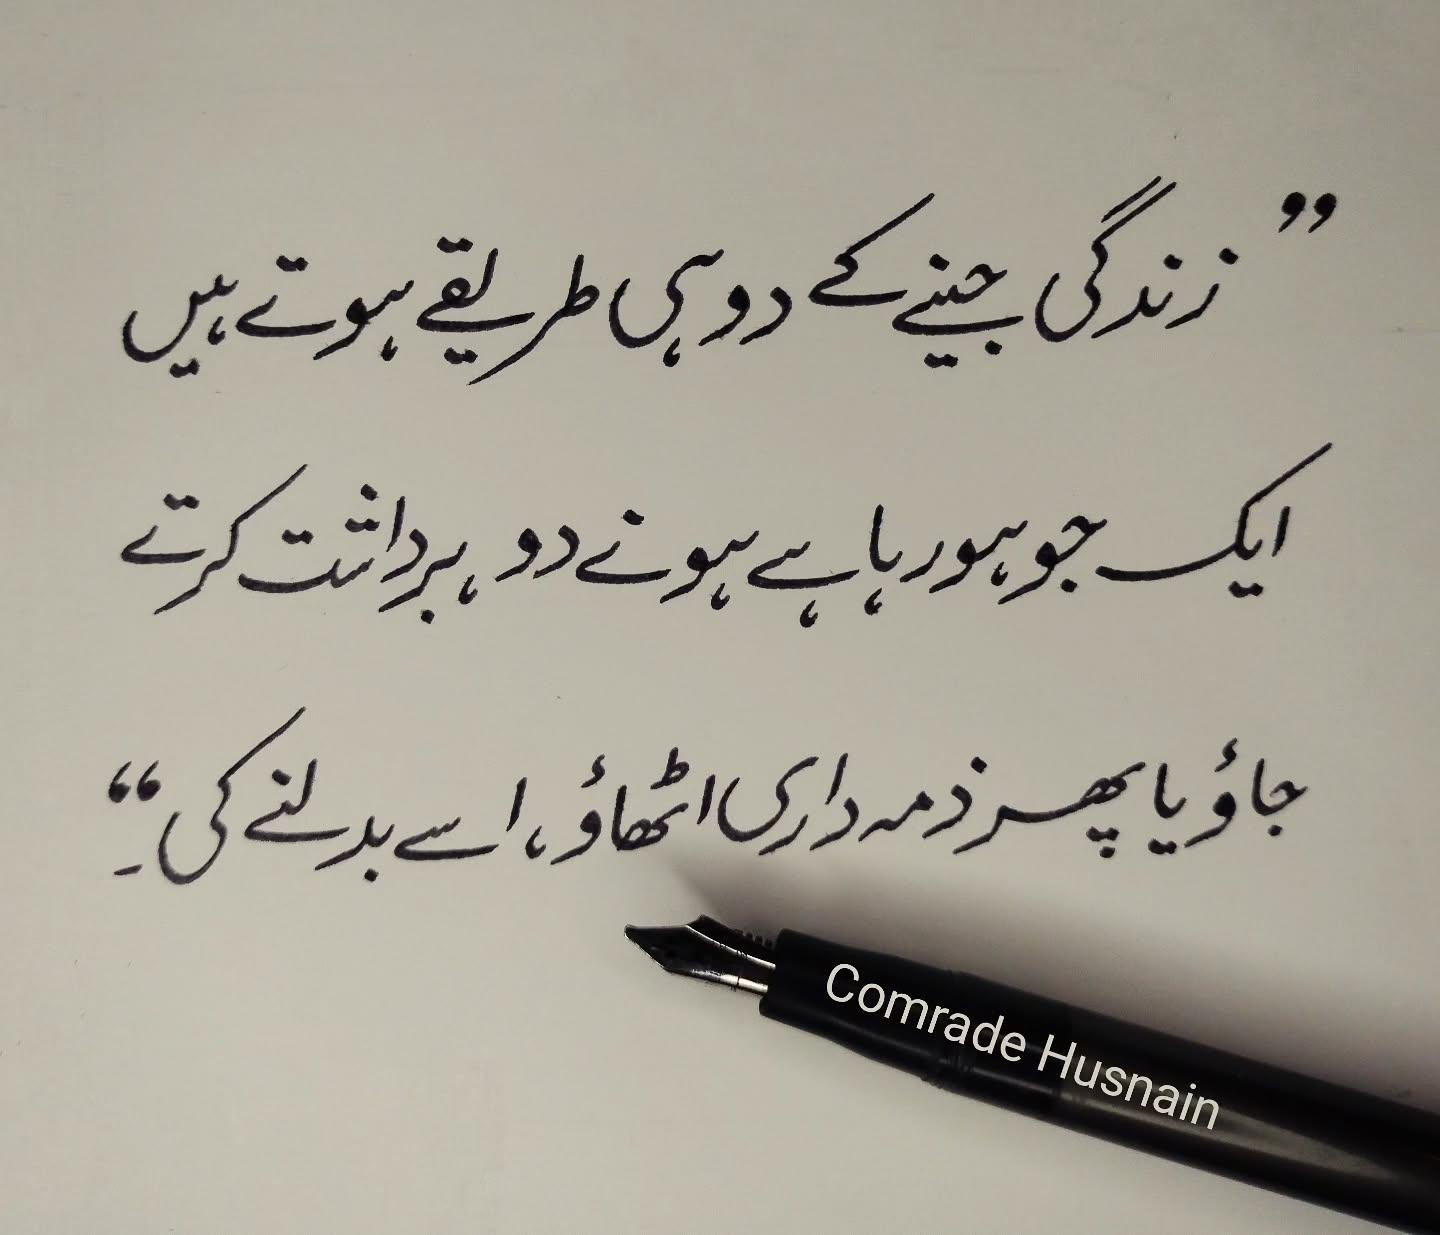 ”زندگی جینے کے دو ہی طریقے ہوتے ہیں
ایک جو ہو رہا ہے ہونے دو، برداشت کرتے
جاؤ یا پھر ذمہ داری اٹھاؤ، اسے بدلنے کی۔“
Comrade Husnain